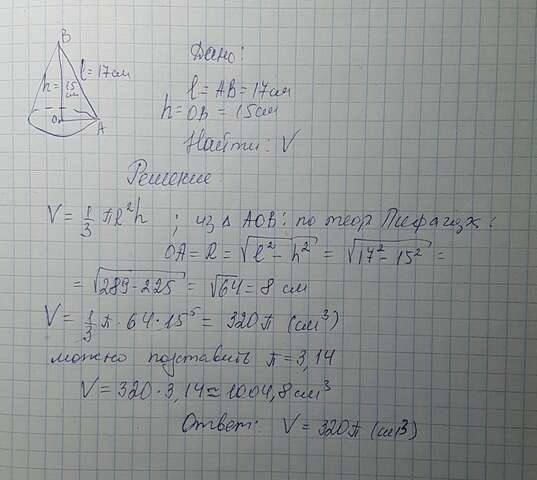 B
l = 17см
h = 15 см
O
A
Дано:
l = AB = 17см
h = OB = 15см
Найти: V
Решение:
V = 1/3 πR²h ; из Δ AOB: по теор Пифагора:
OA = R = √(l² - h²) = √(17² - 15²) =
= √(289 - 225) = √64 = 8 см
V = 1/3 π · 64 · 15⁵ = 320π (см³)
можно подставить π = 3,14
V = 320 · 3,14 ≈ 1004,8 см³
Ответ: V = 320π (см³)